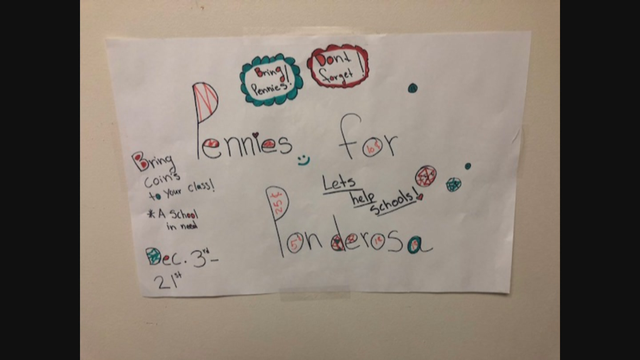 Bring!
Pennies!
Dont
forget!
Pennies for
Bring
coins
to your class!
* A School
in need
Dec. 3rd-
21st
Lets
help
schools!
25¢
Ponderosa